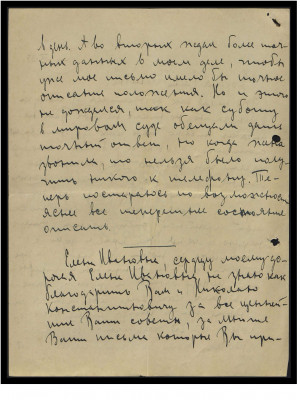 1 день. А во вторых ждал более точ-
ных данных в моем деле, чтобы
уже мое письмо имело бы точное
описание положения. Но и этого
не дождался, так как субботу
в мировом суде обещали дать
точный ответ, но когда жена
звонила, то нельзя было полу-
чить никого к телефону. Те-
перь постараюсь по возможности
ясно все теперешнее состояние
описать.
Елена Ивановна, сердцу моему до-
рогая Елена Ивановна, не знаю как
благодарить Вам и Николаю
Константиновичу за все ценней-
шие Ваши советы, за милые
Ваши письма которые Вы при-